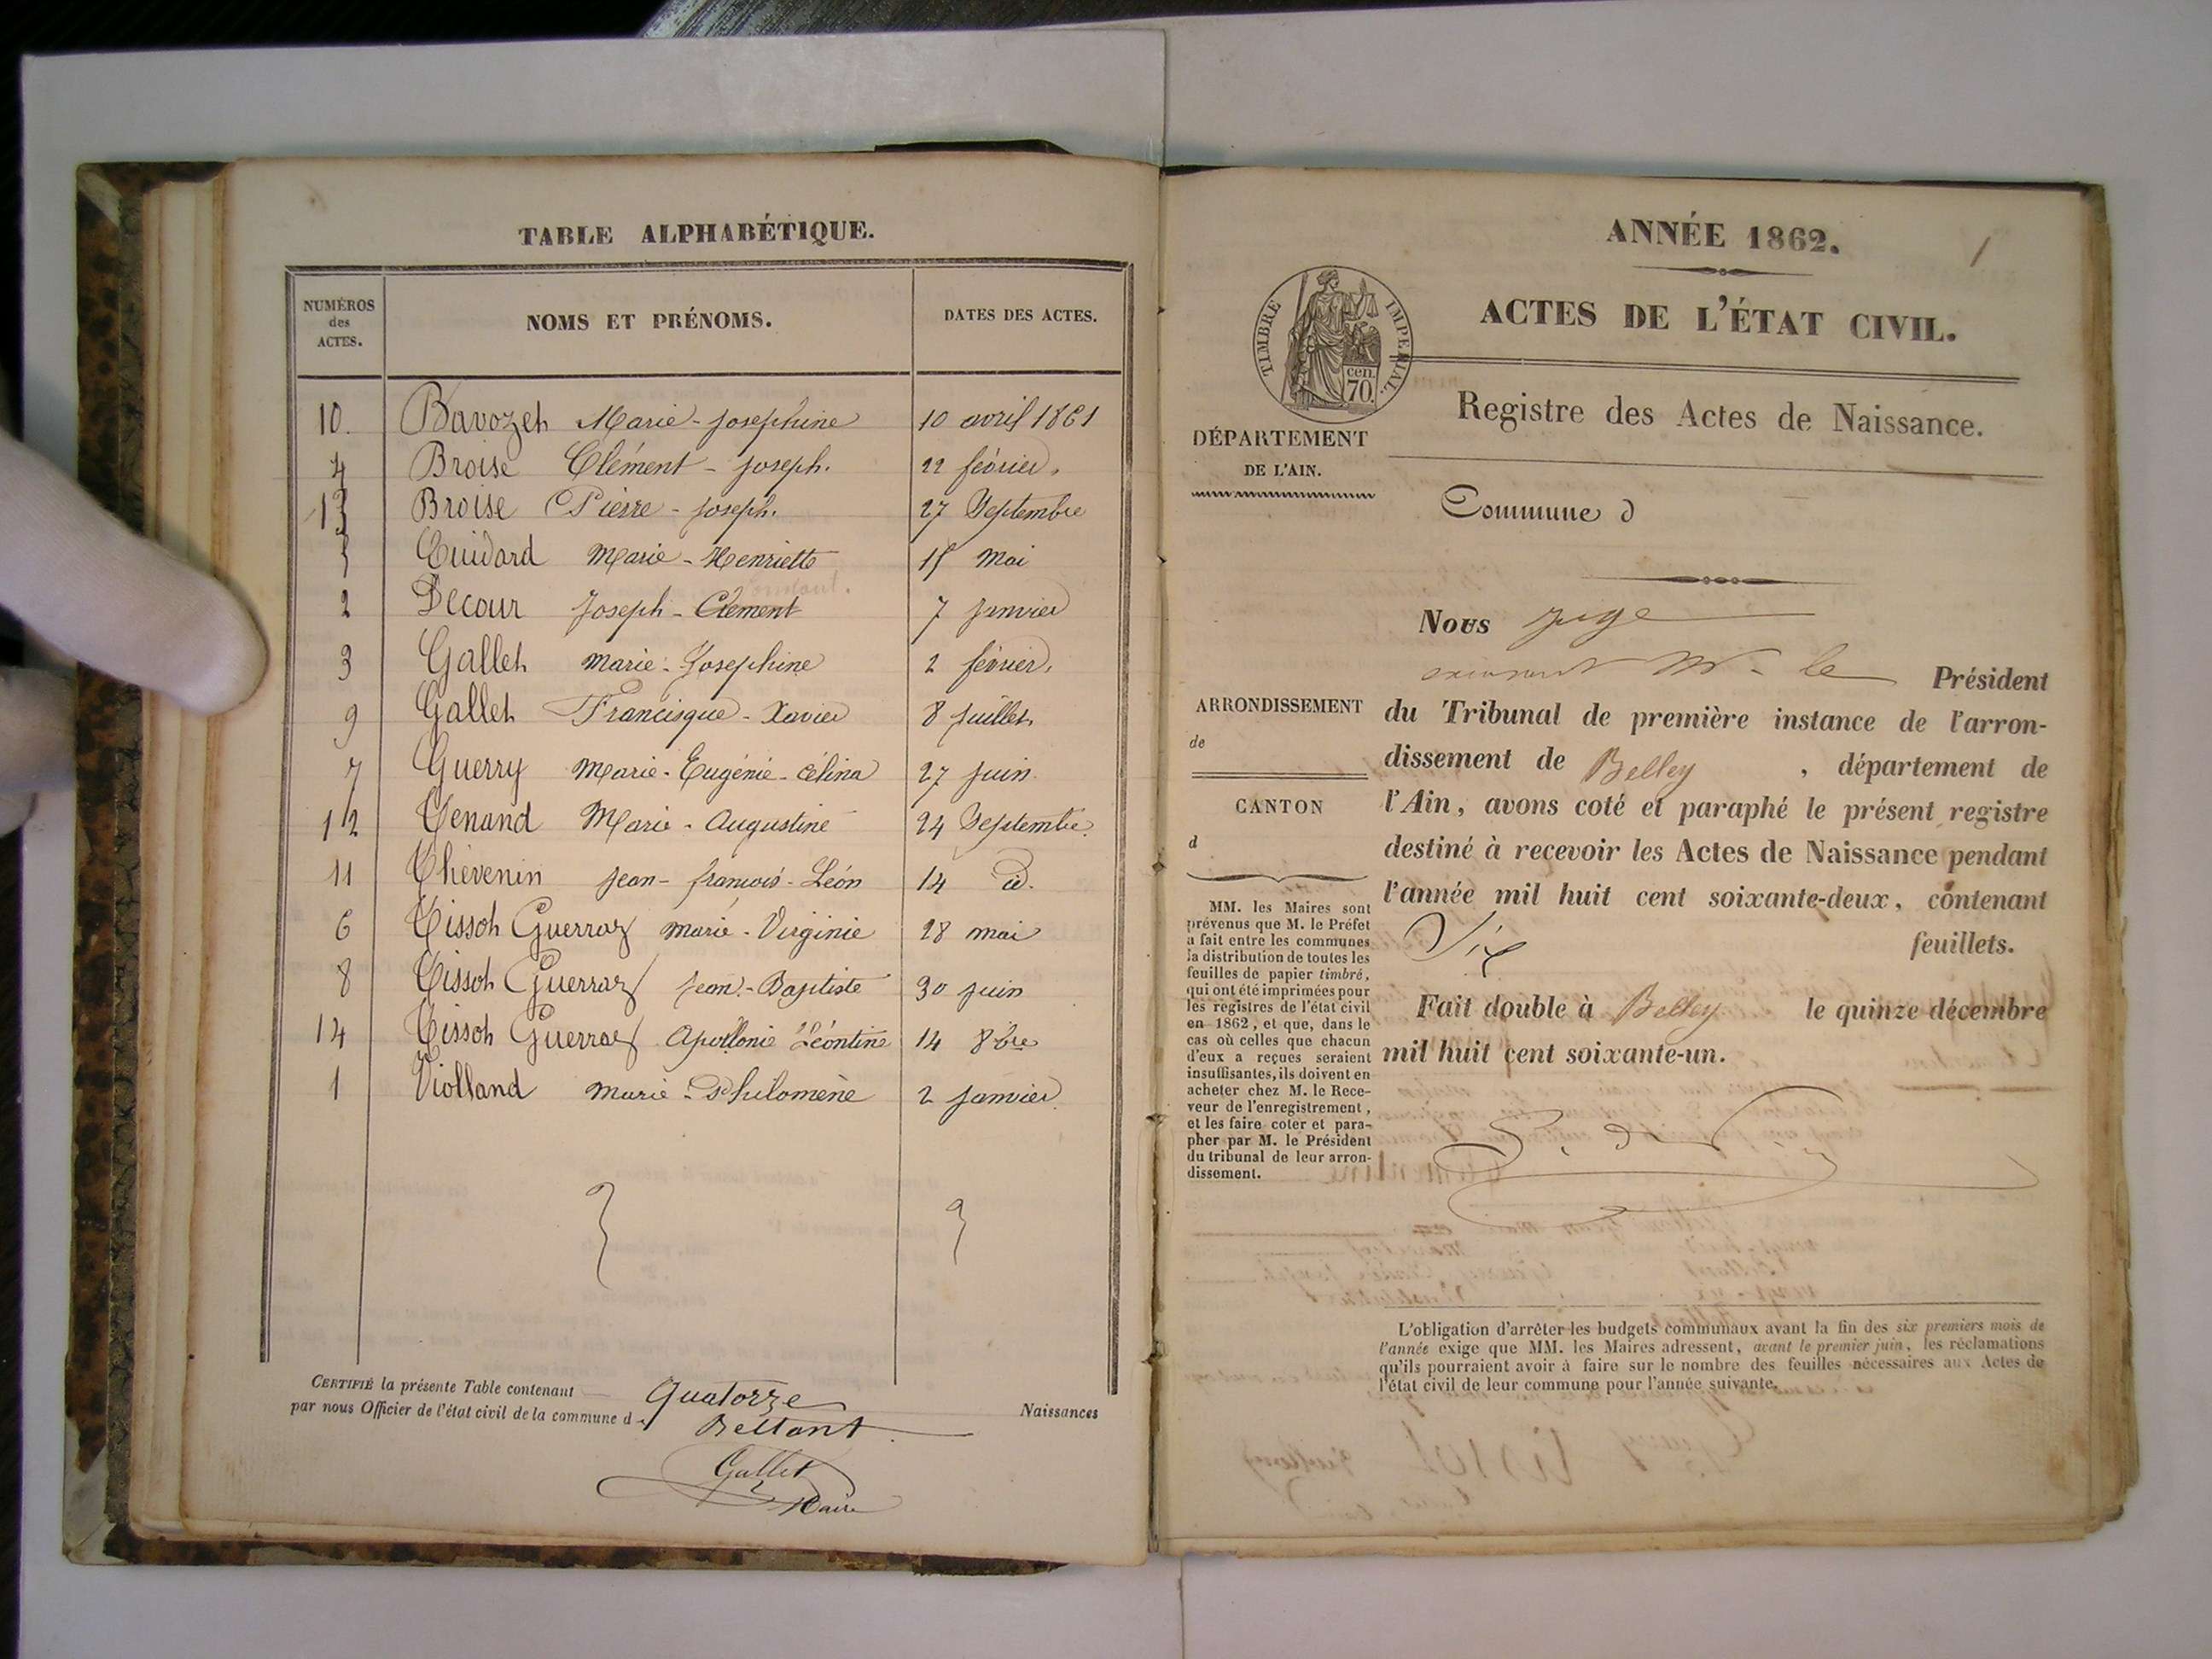 TABLE ALPHABÉTIQUE.
NUMÉROS des ACTES. NOMS ET PRÉNOMS. DATES DES ACTES.
10. Bavozet Marie-Josephine 10 avril 1861
4 Broise Clément-Joseph. 22 février.
13 Broise Pierre-Joseph. 27 Septembre
5 Cuidard Marie-Henriette 15 Mai
2 Decour Joseph-Clément 7 Janvier
3 Gallet Marie-Josephine 2 février.
9 Gallet Francisque-Xavier 8 Juillet
7 Guerry Marie-Eugénie-Célina 27 Juin
12 Tenand Marie-Augustine 24 Septembre
11 Thévenin Jean-françois-Léon 14 id.
6 Tissot Guerraz Marie-Virginie 28 mai
8 Tissot Guerraz Jean-Baptiste 30 Juin
14 Tissot Guerraz Apollonie Léontine 14 8bre
1 Violland Marie-Philomène 2 Janvier
CERTIFIÉ la présente Table contenant Quatorze Naissances
par nous Officier de l'état civil de la commune d Bettant
Gallet
Maire
ANNÉE 1862.
1
ACTES DE L'ÉTAT CIVIL.
TIMBRE IMPÉRIAL.
cen.
70.
Registre des Actes de Naissance.
DÉPARTEMENT
DE L'AIN.
Commune d
Nous juge
M. le Président
ARRONDISSEMENT
de
CANTON
d
du Tribunal de première instance de l'arron-
dissement de Belley, département de
l'Ain, avons coté et paraphé le présent registre
destiné à recevoir les Actes de Naissance pendant
l'année mil huit cent soixante-deux, contenant
Six feuillets.
Fait double à Belley le quinze décembre
mil huit cent soixante-un.
MM. les Maires sont
prévenus que M. le Préfet
a fait entre les communes
la distribution de toutes les
feuilles de papier timbré,
qui ont été imprimées pour
les registres de l'état civil
en 1862, et que, dans le
cas où celles que chacun
d'eux a reçues seraient
insuffisantes, ils doivent en
acheter chez M. le Rece-
veur de l'enregistrement,
et les faire coter et para-
pher par M. le Président
du tribunal de leur arron-
dissement.
L'obligation d'arrêter les budgets communaux avant la fin des six premiers mois de
l'année exige que MM. les Maires adressent, avant le premier juin, les réclamations
qu'ils pourraient avoir à faire sur le nombre des feuilles nécessaires aux Actes de
l'état civil de leur commune pour l'année suivante.